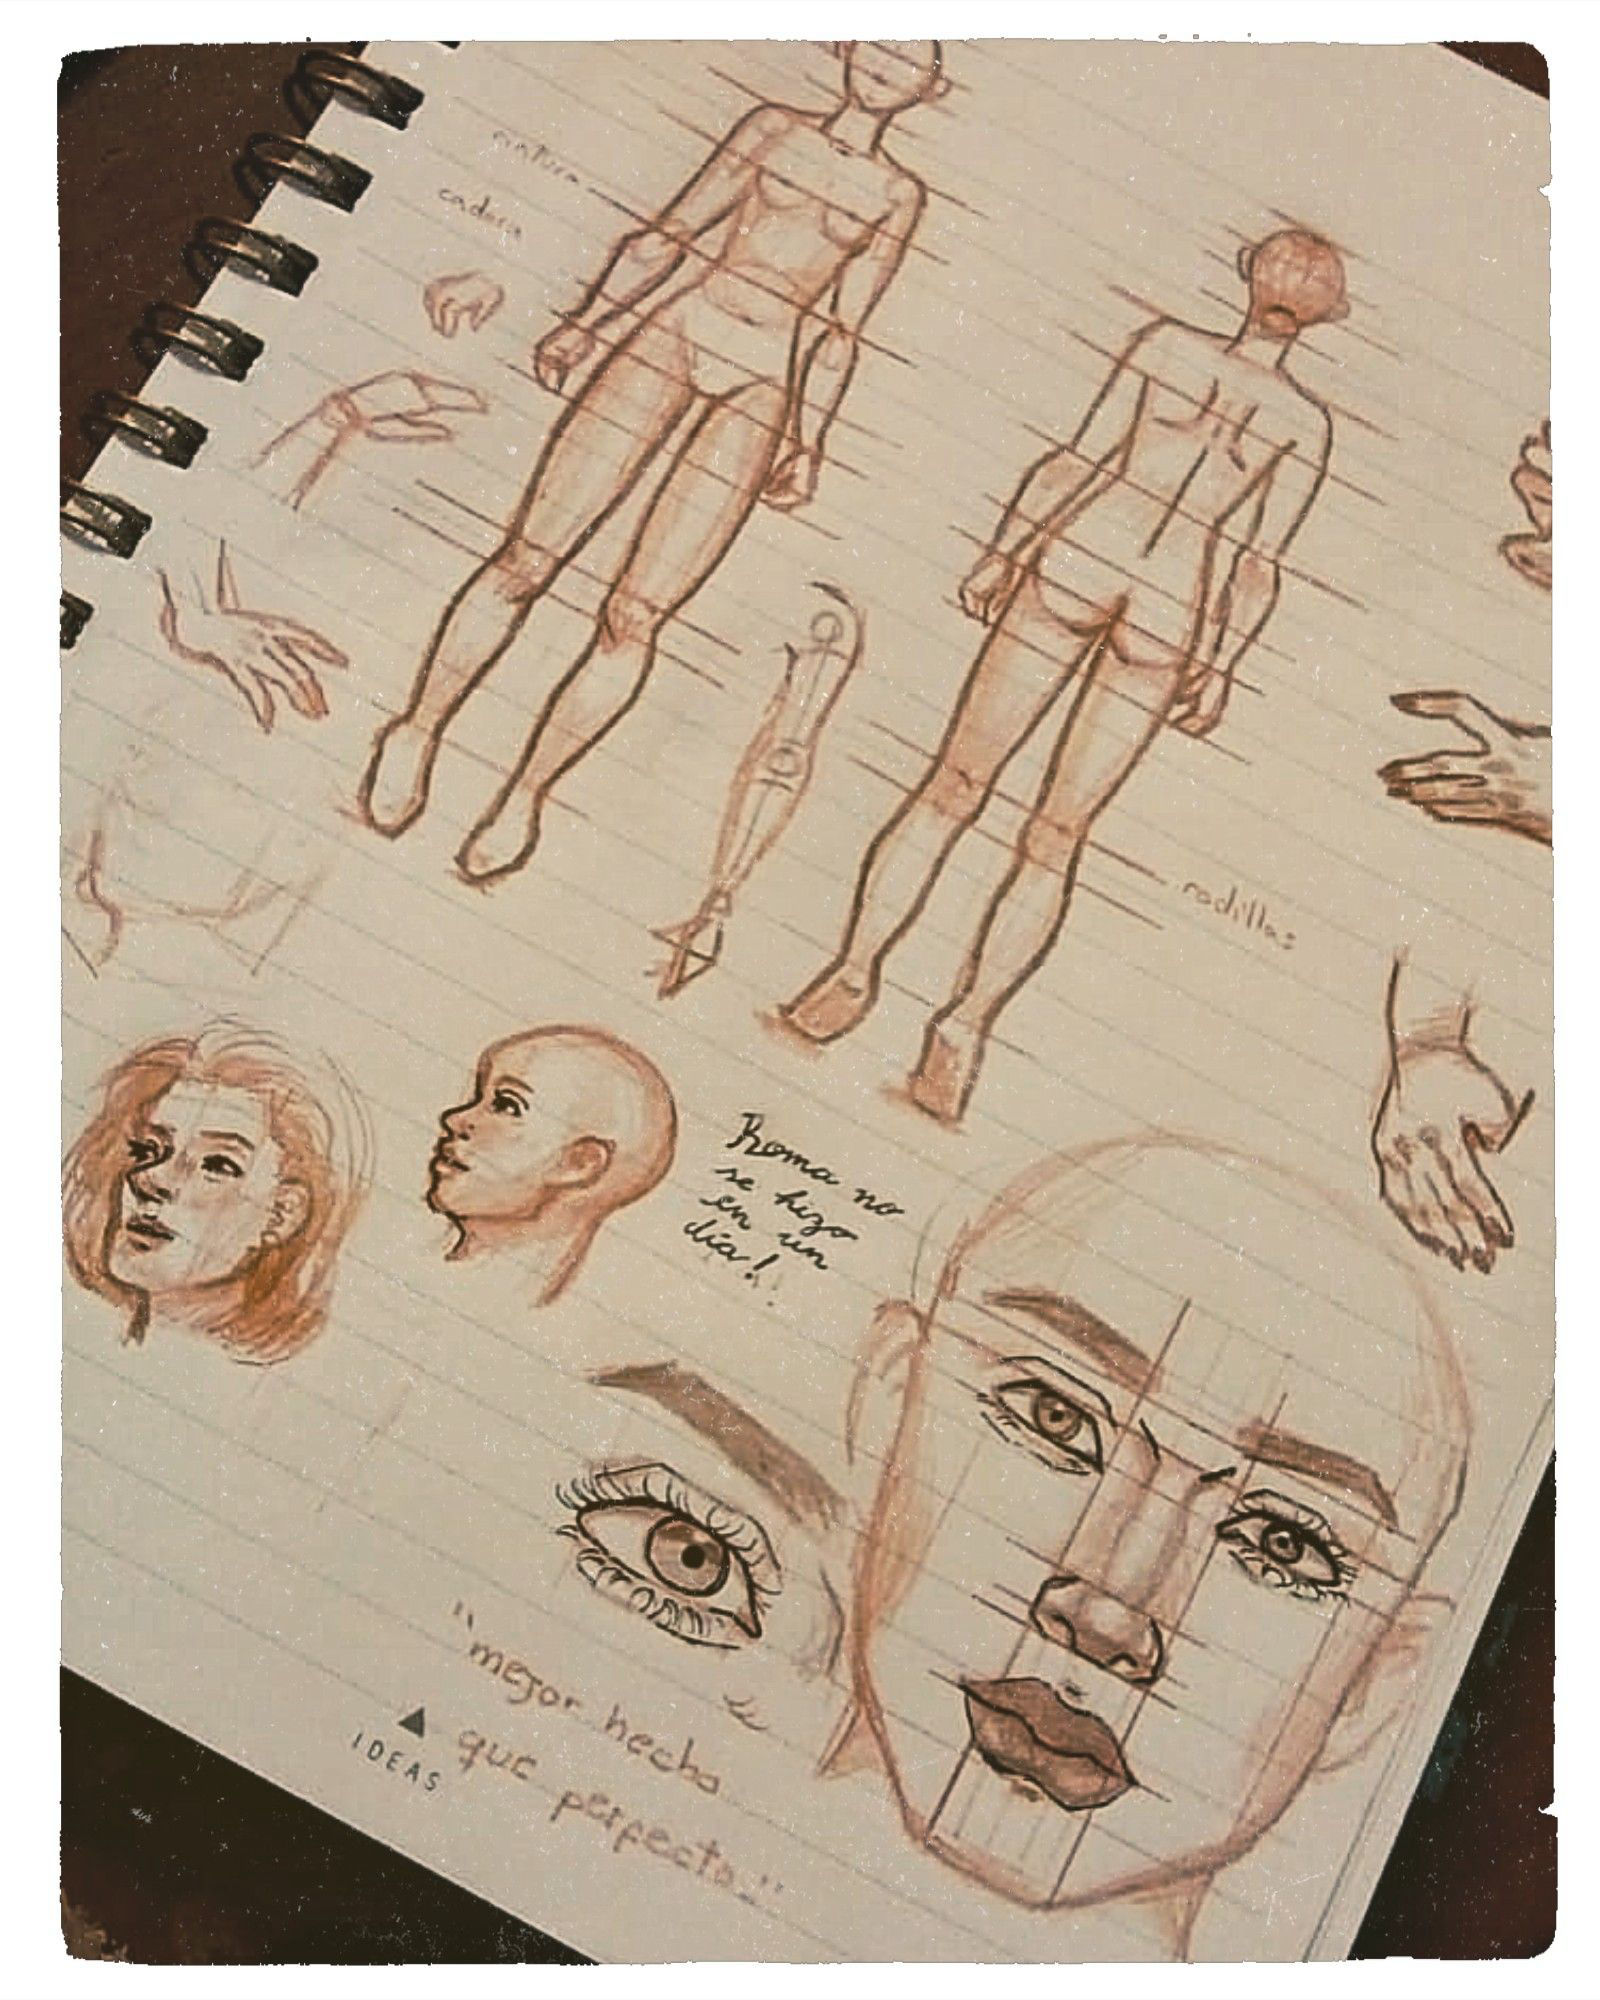 cintura
cadera
rodillas
Roma no
se hizo
en un
día!
"mejor hecho
que perfecto.."
IDEAS